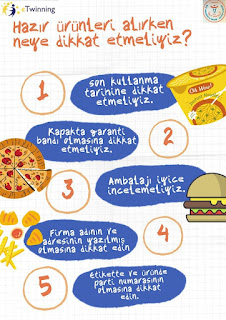 eTwinning
Hazır ürünleri alırken
neye dikkat etmeliyiz?
1
son kullanma
tarihine dikkat
etmeliyiz.
Kapakta garanti
bandı olmasına dikkat
etmeliyiz.
2
3
Ambalajı iyice
incelemeliyiz.
Firma adının ve
adresinin yazılmış
olmasına dikkat edin
4
5
Etikette ve üründe
parti numarasının
olmasına dikkat
edin.